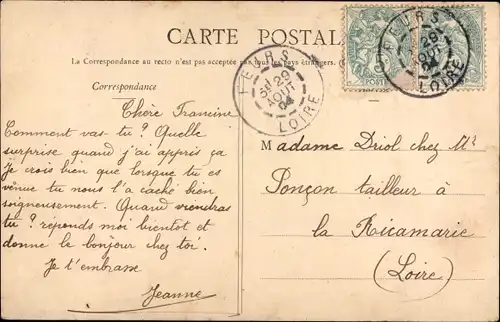 CARTE POSTALE
La Correspondance au recto n'est pas acceptée par tous les pays étrangers. (
Correspondance
FEURS
5E/29
AOUT
04
LOIRE
FEURS
29
AOUT
04
LOIRE
Chère Francine
Comment vas tu? Quelle
surprise quand j'ai appris ça
Je crois bien que lorsque tu es
venue tu nous l'a caché bien
soigneusement. Quand viendras
tu? réponds moi bientot et
donne le bonjour chez toi.
Je t'embrasse
Jeanne
Madame Driol chez Mr
Ponçon tailleur à
la Ricamarie
(Loire)